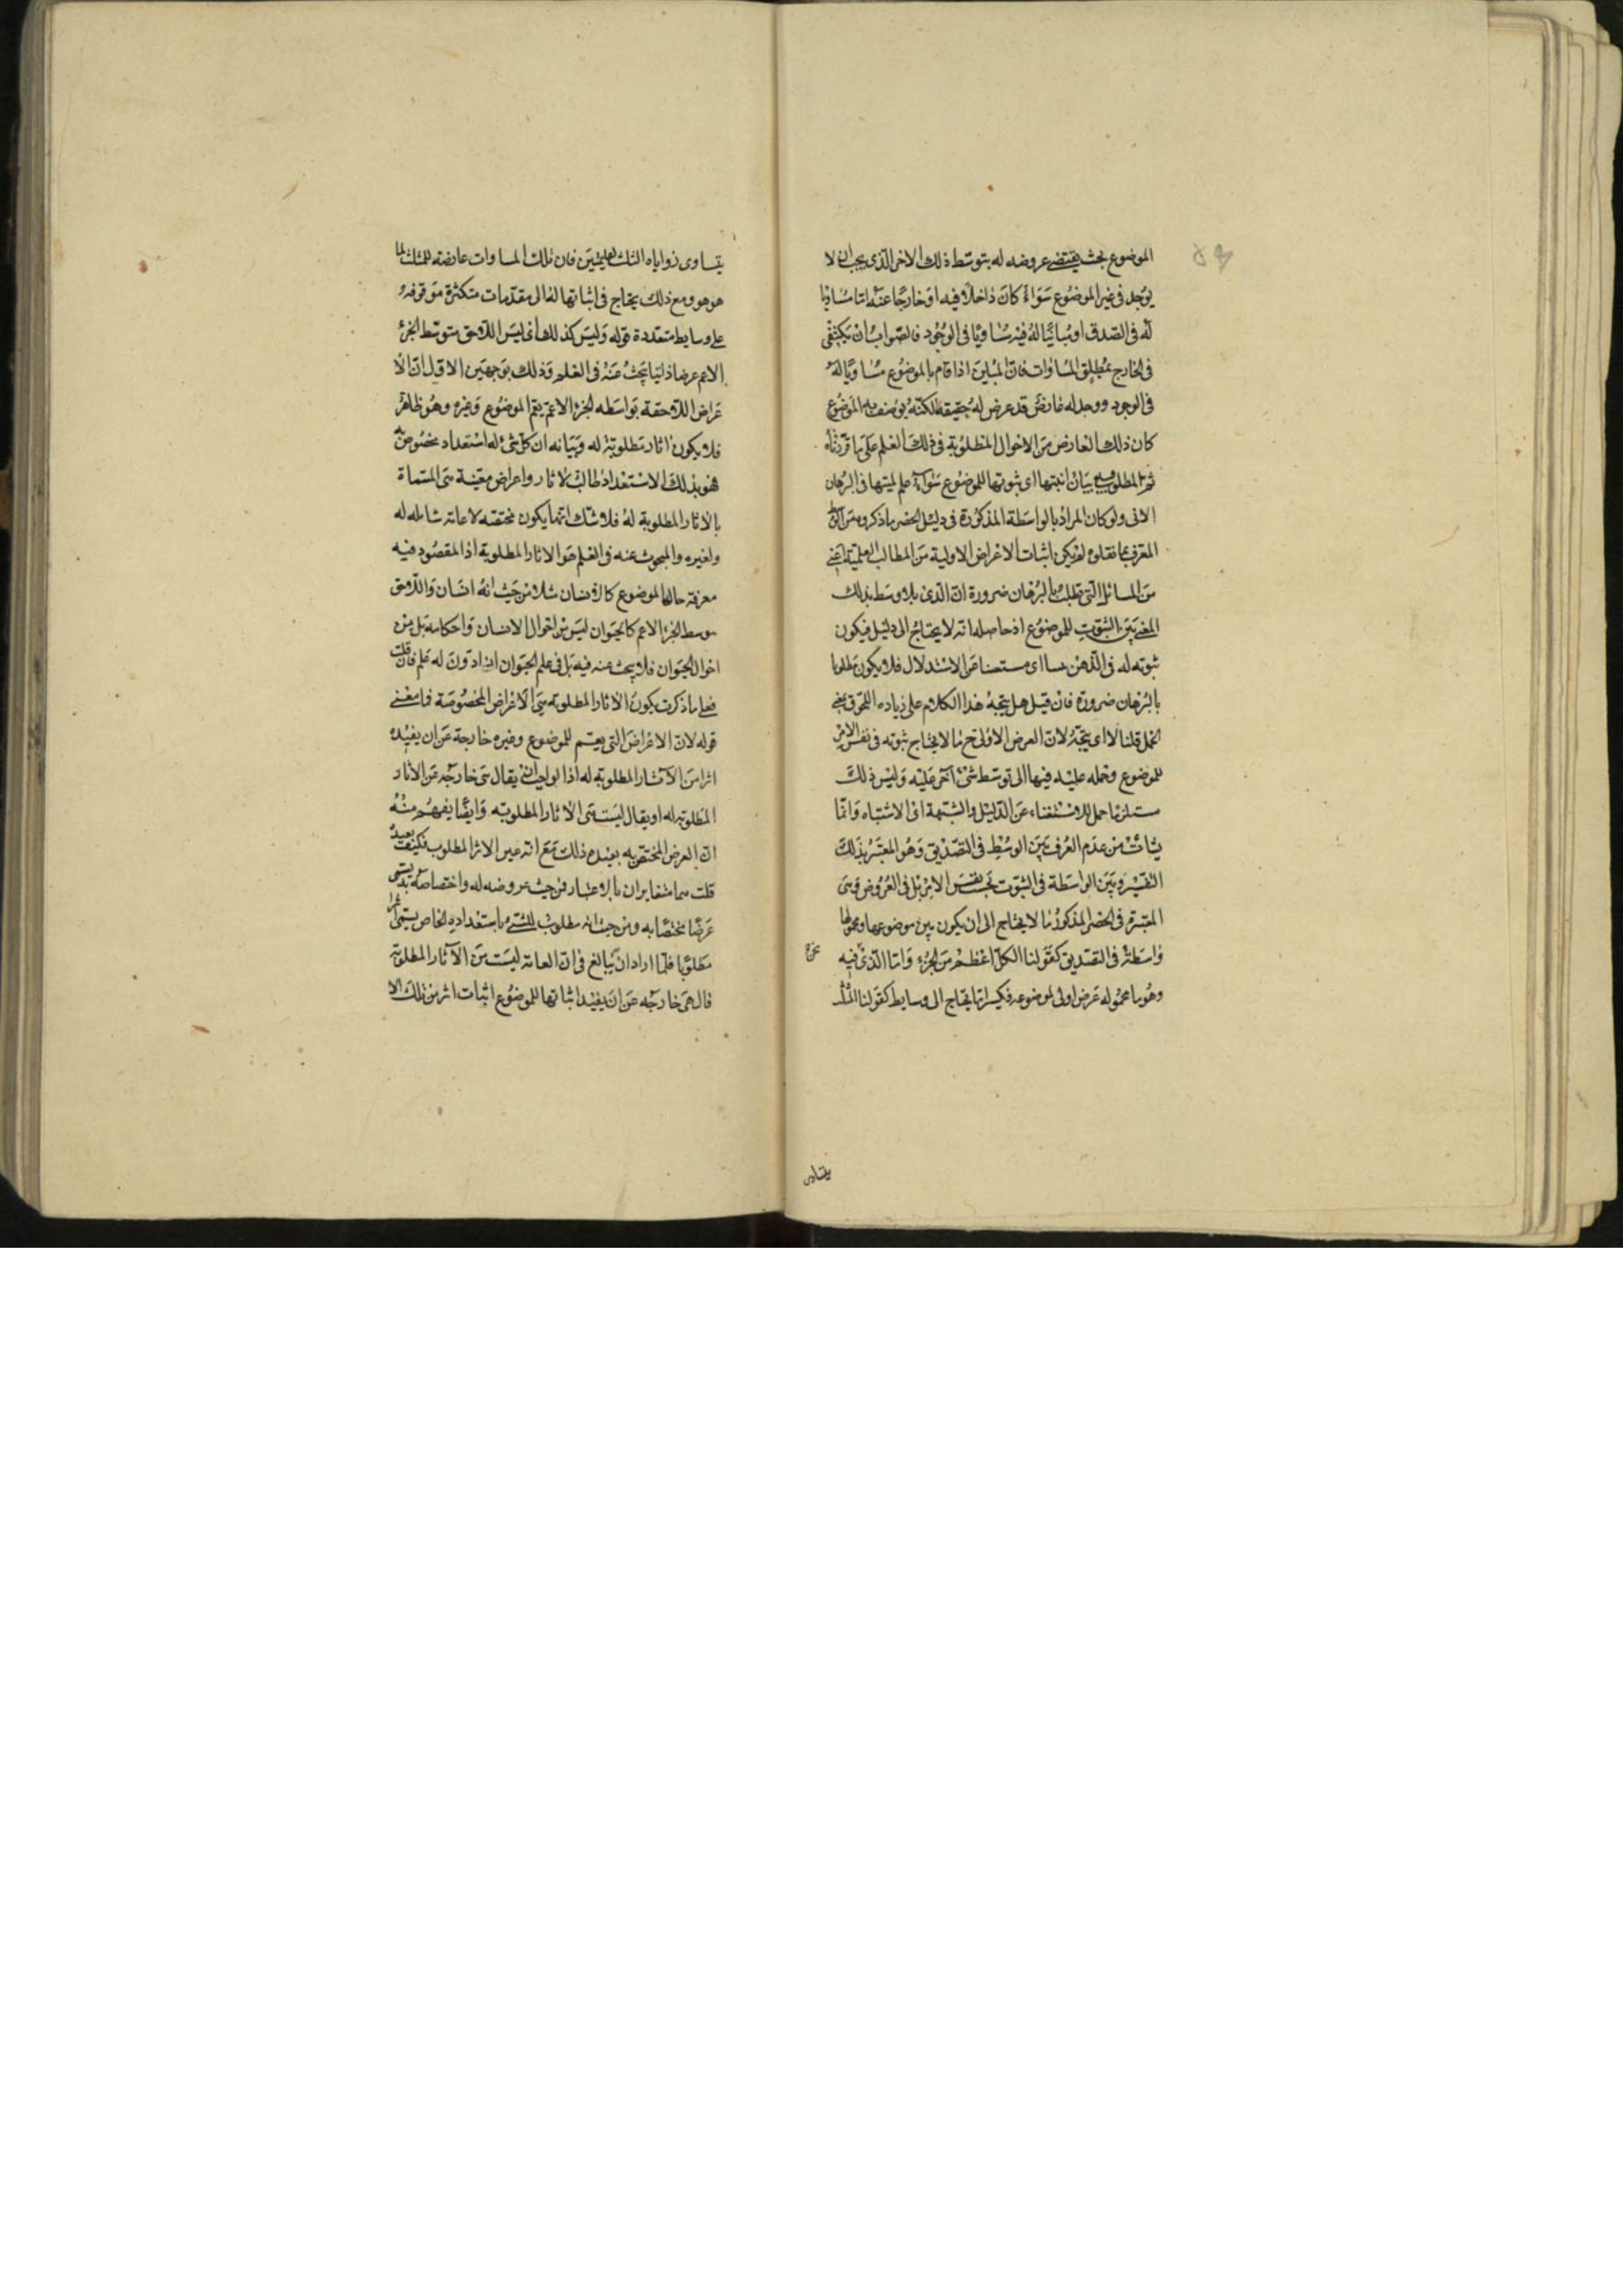 الموضوع بحيث يقتضي عروضه له بتوسط ذلك الاخر الذى يجب ان لا
يوجد في غير الموضوع سواء كان داخلا فيه او خارجا عنه اما مساويا
له في الصدق او مباينا له فيه مساويا في الوجود فالصواب ان يكتفى
في الخارج بمطلق المساوات فان المباين اذا قام بالموضوع مساويا له
في الوجود ووجد له عارض قد عرض له حقيقة لكنه يوصف به الموضوع
كان ذلك العارض من الاحوال المطلوبة في ذلك العلم على ما قررناه
ثم المطلوب بيان انيتها اى ثبوتها للموضوع سواء علم لميتها في البرهان
الانى ولو كان المراد بالواسطة المذكورة في دليل الحصر ما ذكروه من
المعرف بما نقلوه لم يكن اثبات الاعراض الاولية من المطالب العلمية اعنى
من المسائل التى تطلب بالبرهان ضرورة ان الذى بلا وسط بذلك
المعنى بين الثبوت للموضوع اذ حاصله انه لا يحتاج الى دليل فيكون
ثبوته له في الذهن اى مستغنيا عن الاستدلال فلا يكون مطلوبا
بالبرهان ضرورة فان قيل هل يتجه هذا الكلام على زيادة اللحوق بمعنى
الحمل قلنا لا اى يتجه لان العرض الاولى ح ما لا يحتاج ثبوته في نفس الامر
للموضوع وحمله عليه فيها الى توسط شئ اخر عليه وليس ذلك
مستلزما حمل للاستغناء عن الدليل والشبهة اى الاشتباه وانما
نشأت من عدم الفرق بين الوسط في التصديق وهو المعتبر بذلك
التفسير وبين الواسطة في الثبوت بحسب نفس الامر بل في العروض وهى
المعتبرة في الحصر المذكور ما لا يحتاج الى ان يكون بين موضوعها ومحمولها
واسطة في التصديق كقولنا الكل اعظم من الجزء واما الذى فيه
وهو ما محموله عرض اولى لموضوعه فكثيرا ما يحتاج الى وسايط كقولنا المثلث
يتساوى
يتساوى زواياه الثلث لقايمتين فان تلك المساوات عارضة للمثلث لما
هو هو ومع ذلك يحتاج في اثباتها له الى مقدمات متكثرة موقوفة
على وسايط متعددة قوله وليس كذلك اى ليس اللاحق بتوسط الجزء
الاعم عرضا ذاتيا يبحث عنه في العلم وذلك بوجهين الاول ان الا
عراض اللاحقة بواسطة الجزء الاعم يعم الموضوع وغيره وهو ظاهر
فلا يكون اثار مطلوبة له وبيانه ان كل شئ له استعداد مخصوص
فهو بذلك الاستعداد طالب لاثار واعراض معينة هى المسماة
بالاثار المطلوبة له فلا شك انها يكون مختصه لا عامة شاملة له
ولغيره والمبحوث عنه في العلم هو الاثار المطلوبة اذ المقصود فيه
معرفة حال الموضوع كالانسان مثلا من حيث انه انسان واللاحق
بتوسط الجزء الاعم كالحيوان ليس من احوال الانسان واحكامه بل من
احوال الحيوان فلا يبحث عنه فيه بل في علم الحيوان ان دون له علم فان قلت
فعلى ما ذكرت يكون الاثار المطلوبة هى الاعراض المخصوصة فما معنى
قوله لان الاعراض التى يعم للموضوع وغيره خارجة عن ان يفيده
اثرا من الاثار المطلوبة له اذ الواجب ان يقال هى خارجة عن الاثار
المطلوبة له او يقال ليست هى الاثار المطلوبة وايضا يفهم منه
ان العرض المختص به يفيده ذلك مع انه عين الاثر المطلوب فكيف يفيده
قلت هما متغايران بالاعتبار فمن حيث عروضه له واختصاصه به يسمى
عرضا مختصا به ومن حيث انه مطلوب للشئ باستعداده الخاص يسمى اثرا
مطلوبا فلما اراد ان يبالغ في ان العامة ليست من الاثار المطلوبة
قال هى خارجة عن ان يفيد اثباتها للموضوع اثبات اثر من تلك الا